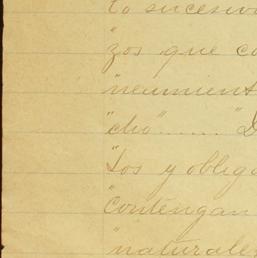 to sucesivo
"zos que co
"neumient
"cho"......"D
"tos y obliga
"contengan
"naturale